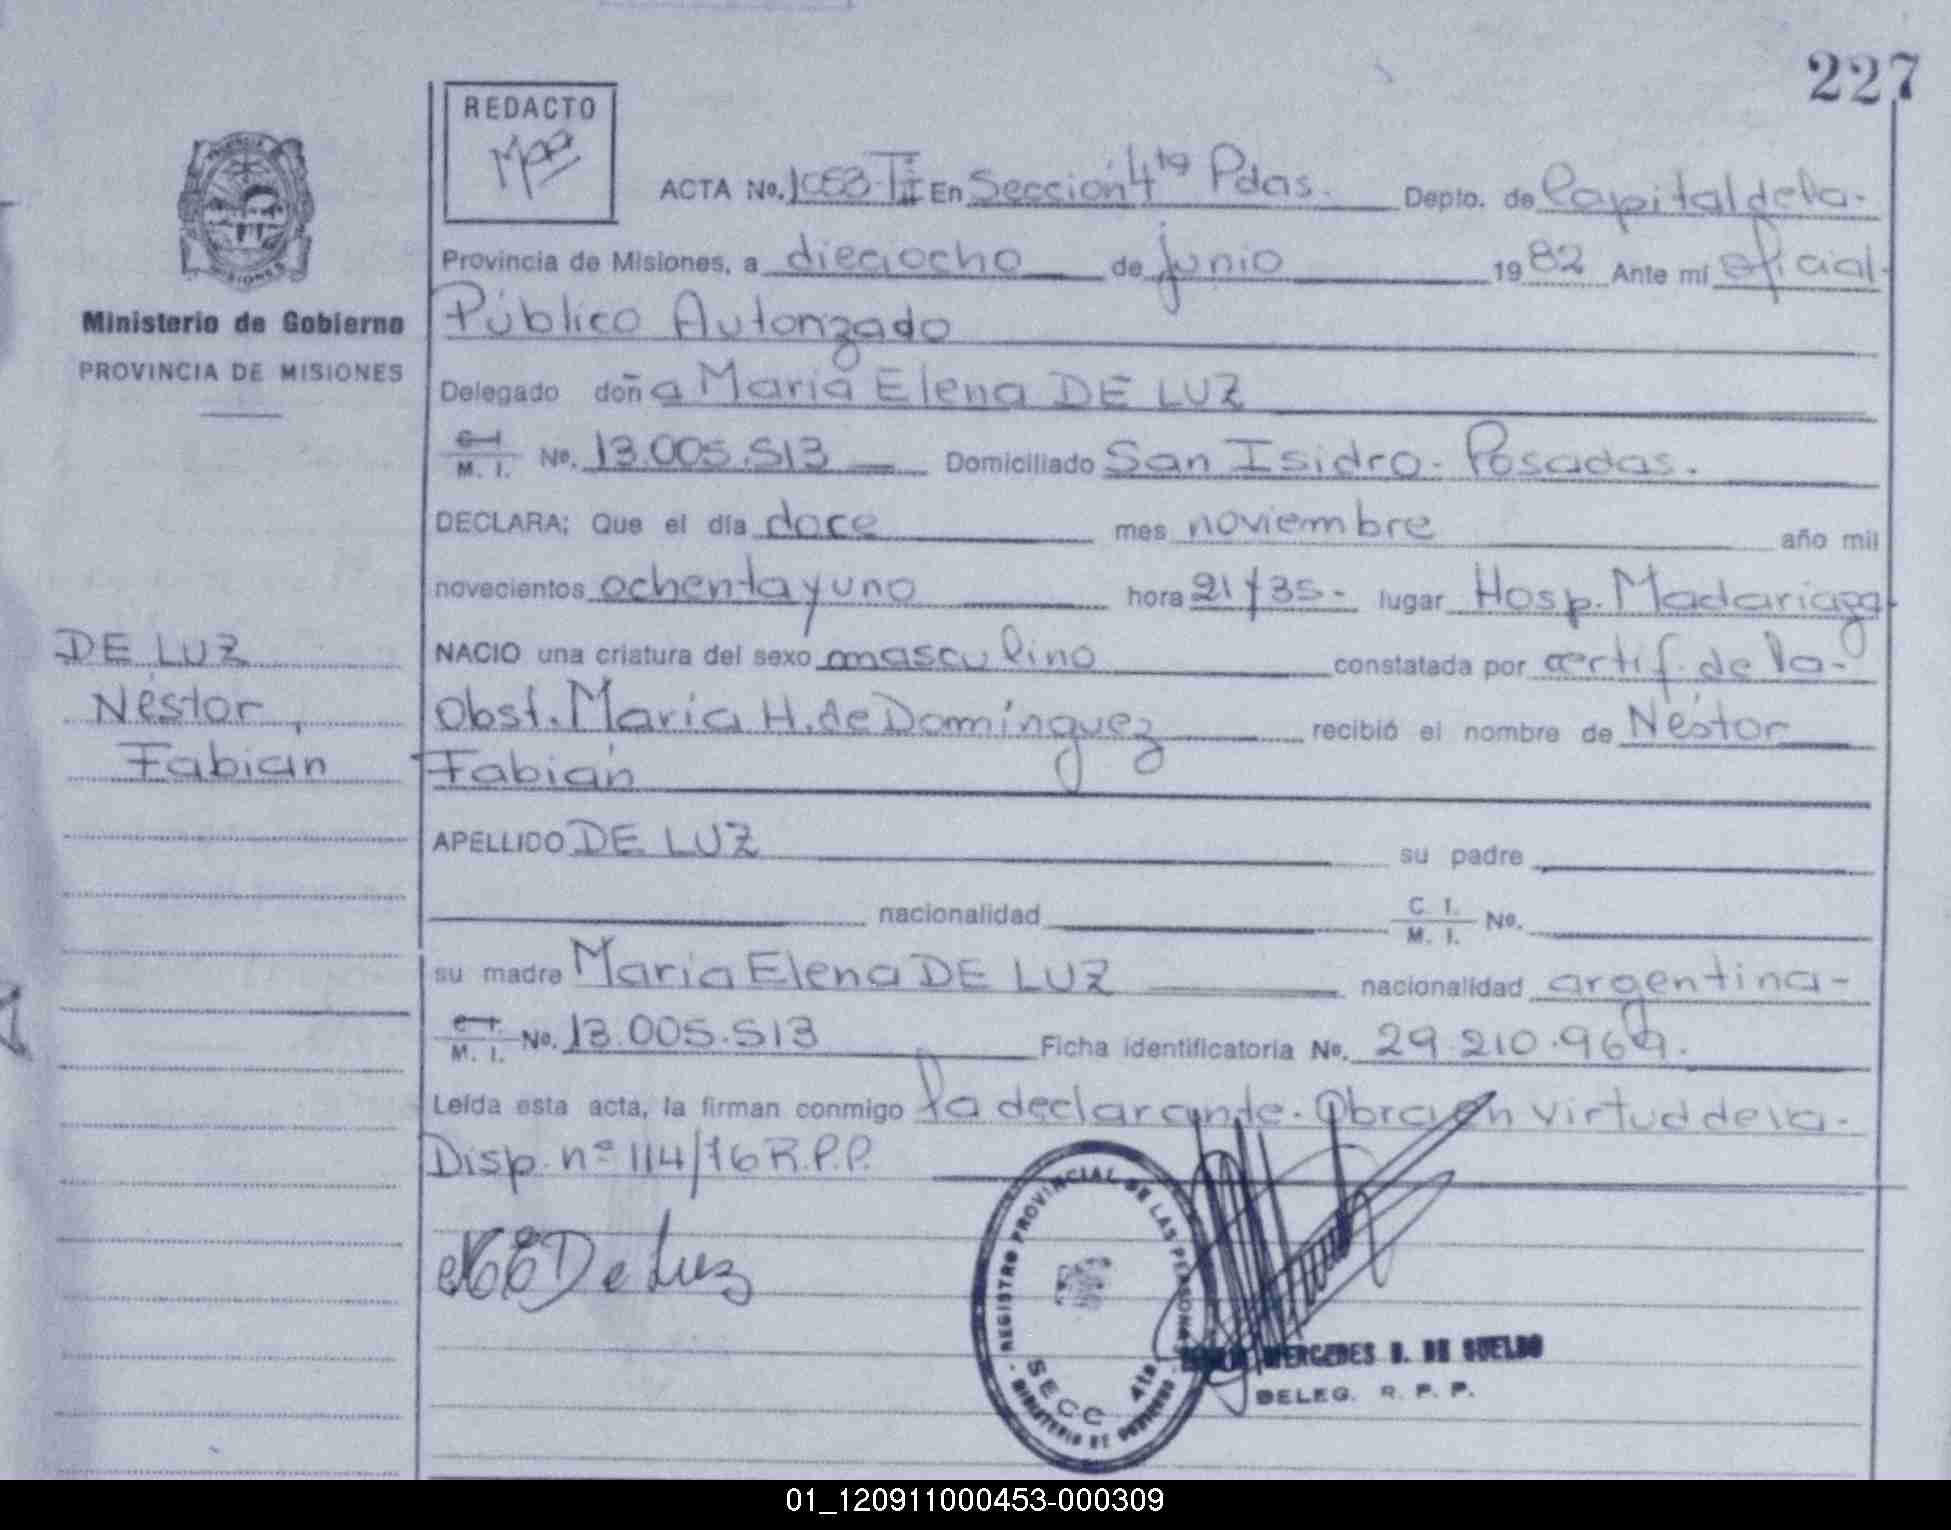 227
REDACTO
ACTA No. 1053-TII En Sección 4ta Pdas. Depto. de Capital de la.
Provincia de Misiones, a dieciocho de junio 1982 Ante mí oficial.
Ministerio de Gobierno
PROVINCIA DE MISIONES
Público Autorizado
Delegado doña María Elena DE LUZ
C. I. M. I. No. 13.005.513 Domiciliado San Isidro. Posadas.
DECLARA; Que el día doce mes noviembre año mil
novecientos ochenta y uno hora 21 y 35. lugar Hosp. Madariaga
NACIO una criatura del sexo masculino constatada por certif. de la-
Obst. María H. de Domínguez recibió el nombre de Néstor
Fabián
DE LUZ
Néstor,
Fabián
APELLIDO DE LUZ su padre
nacionalidad C. I. M. I. No.
su madre María Elena DE LUZ nacionalidad argentina-
C. I. M. I. No. 13.005.513 Ficha identificatoria No. 29.210.969.
Leída esta acta, la firman conmigo la declarande. Obra en virtud de la.
Disp. nº 114/76 R.P.P.
De Luz
REGISTRO PROVINCIAL DE LAS PERSONAS
SECC 4ta
MINISTERIO DE GOBIERNO
MERCEDES B. DE SUELDO
DELEG. R. P. P.
01_120911000453-000309